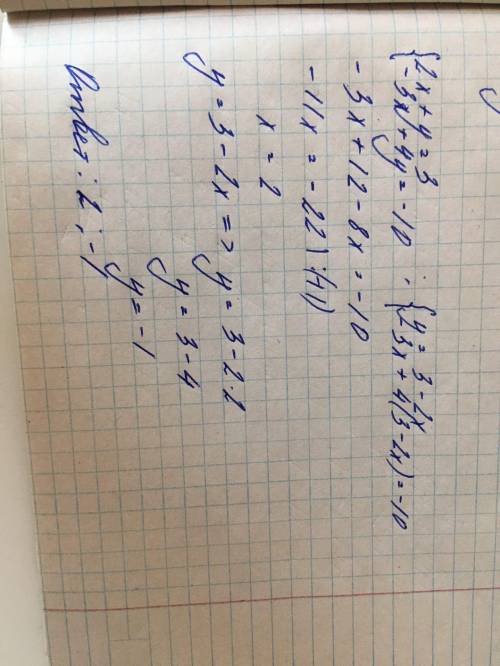 {2x + y = 3 {y = 3 - 2x
{-3x + 4y = -10 ; {-3x + 4(3 - 2x) = -10
-3x + 12 - 8x = -10
-11x = -22 | :(-11)
x = 2
y = 3 - 2x => y = 3 - 2·2
y = 3 - 4
y = -1
Ответ: 2 ; -1